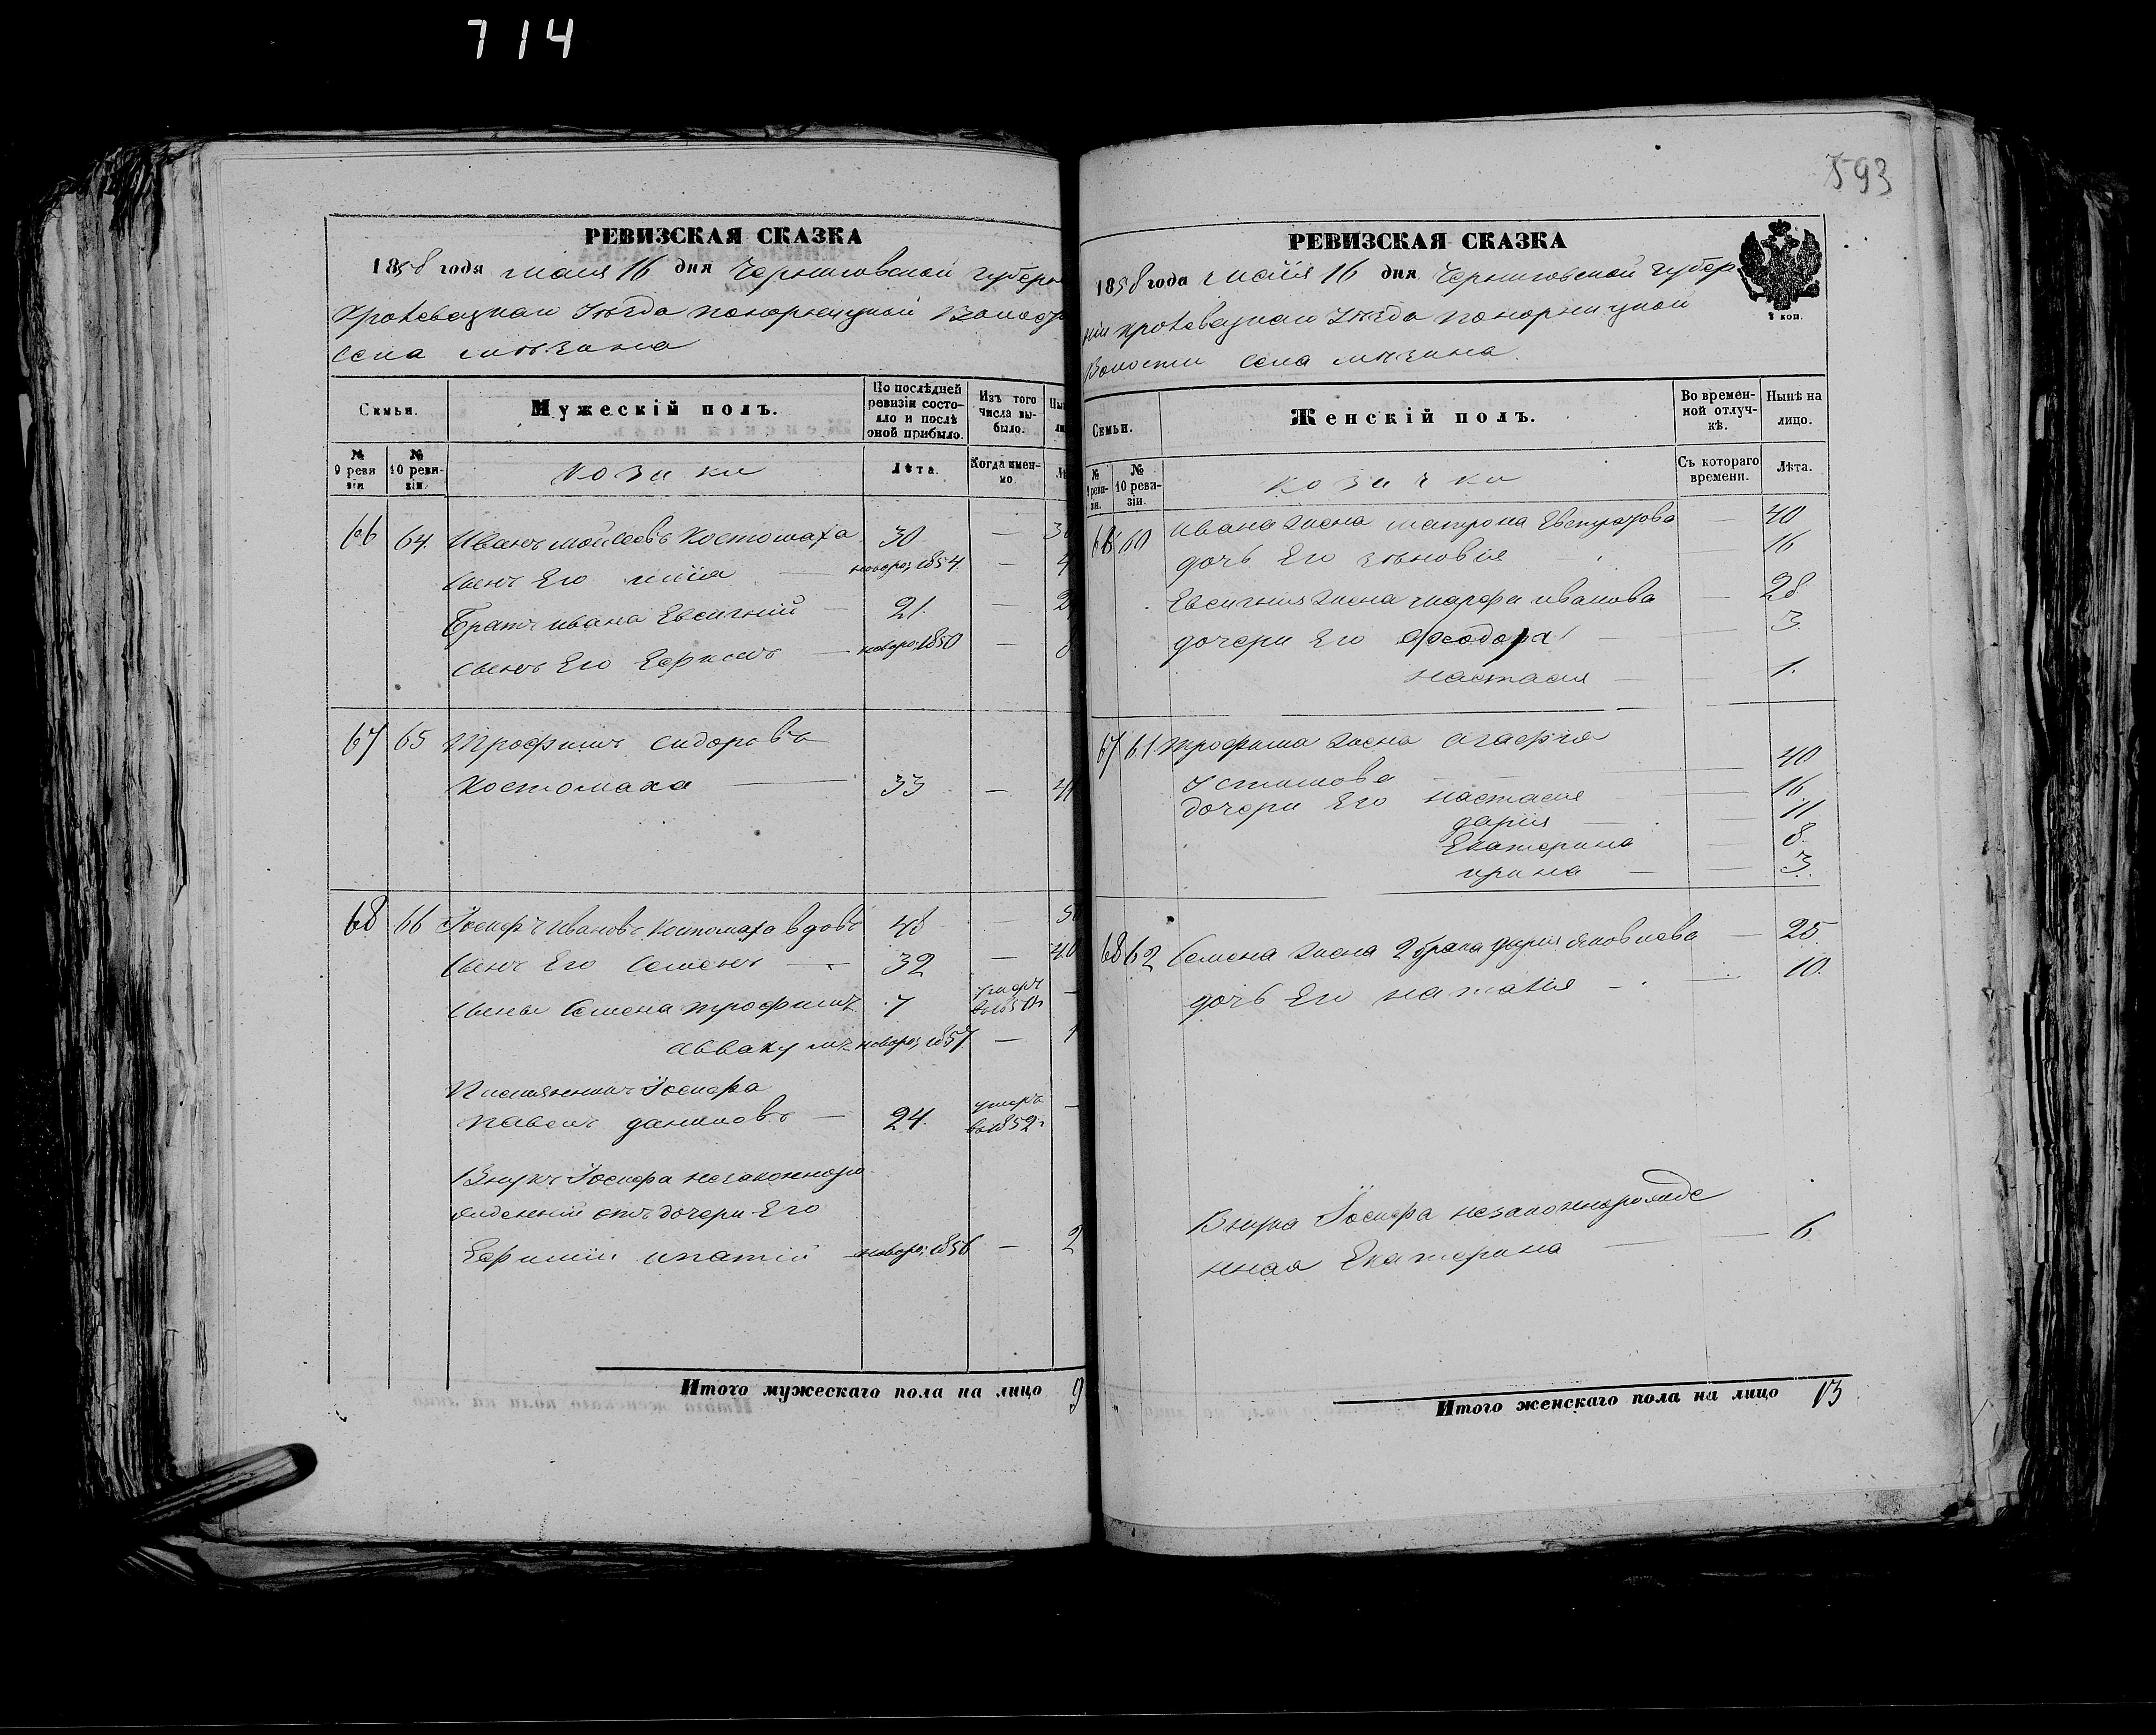 714
РЕВИЗСКАЯ СКАЗКА
1858 года маія 16 дня Черниговской губерн
Кролевецкаго Уѣзда понорницкой Волост
Села мѣзина
Семьи. Мужескій полъ. По послѣдней ревизіи состояло и послѣ оной прибыло. Изъ того числа выбыло.
№ 9 ревизіи № 10 ревизіи. козаки Лѣта. Когда именно.
66 64. Иванъ мойсеевъ Костомаха 30 —
Сынъ Его — новорож 1854. —
Братъ ивана Евсигній — 21. —
сынъ Его Ефимъ — новорож 1850 — 8
67 65 Трофимъ сидоровъ
Костомаха — 33 —
68 66 Іосифъ ивановъ Костомаха вдовъ 48 —
Сынъ Его Семенъ — 32 — 40
Сыны Семена трофимъ 7 умеръ —
аввакумъ новорож 1857. — 1
Племянникъ Іосифа
павелъ даниловъ — 24. умеръ —
въ 1852 г.
Внукъ Іосифа незаконноро
жденній отъ дочери Его
Ефиміи ипатій новорож 1856 — 2
Итого мужескаго пола на лицо 9
593
РЕВИЗСКАЯ СКАЗКА
1858 года маія 16 дня Черниговской губер
ніи кролевецкаго Уѣзда понорницкой
Волости села мѣзина.
2 коп.
Семьи. Женскій полъ. Во временной отлучкѣ. Нынѣ на лицо.
№ 9 ревизіи. № 10 ревизіи. козачки Съ котораго времени. Лѣта.
66 60 ивана жена матрона Евстратова — 40
дочь Его зѣновія — 16
Евсигнія жена марфа иванова — 28
дочери Его Феодора — 3.
настасия — 1.
67 61. трофима жена агафія
Устимова — 40
дочери Его настасия — 16
дария — 11
Екатерина — 8.
ирина — 3.
68 62 Семена жена 2 брака дарія яковлева — 25
дочь Его наталія — 10.
Внука Іосифа незаконнорожде
нная Екатерина — 6
Итого женскаго пола на лицо 13